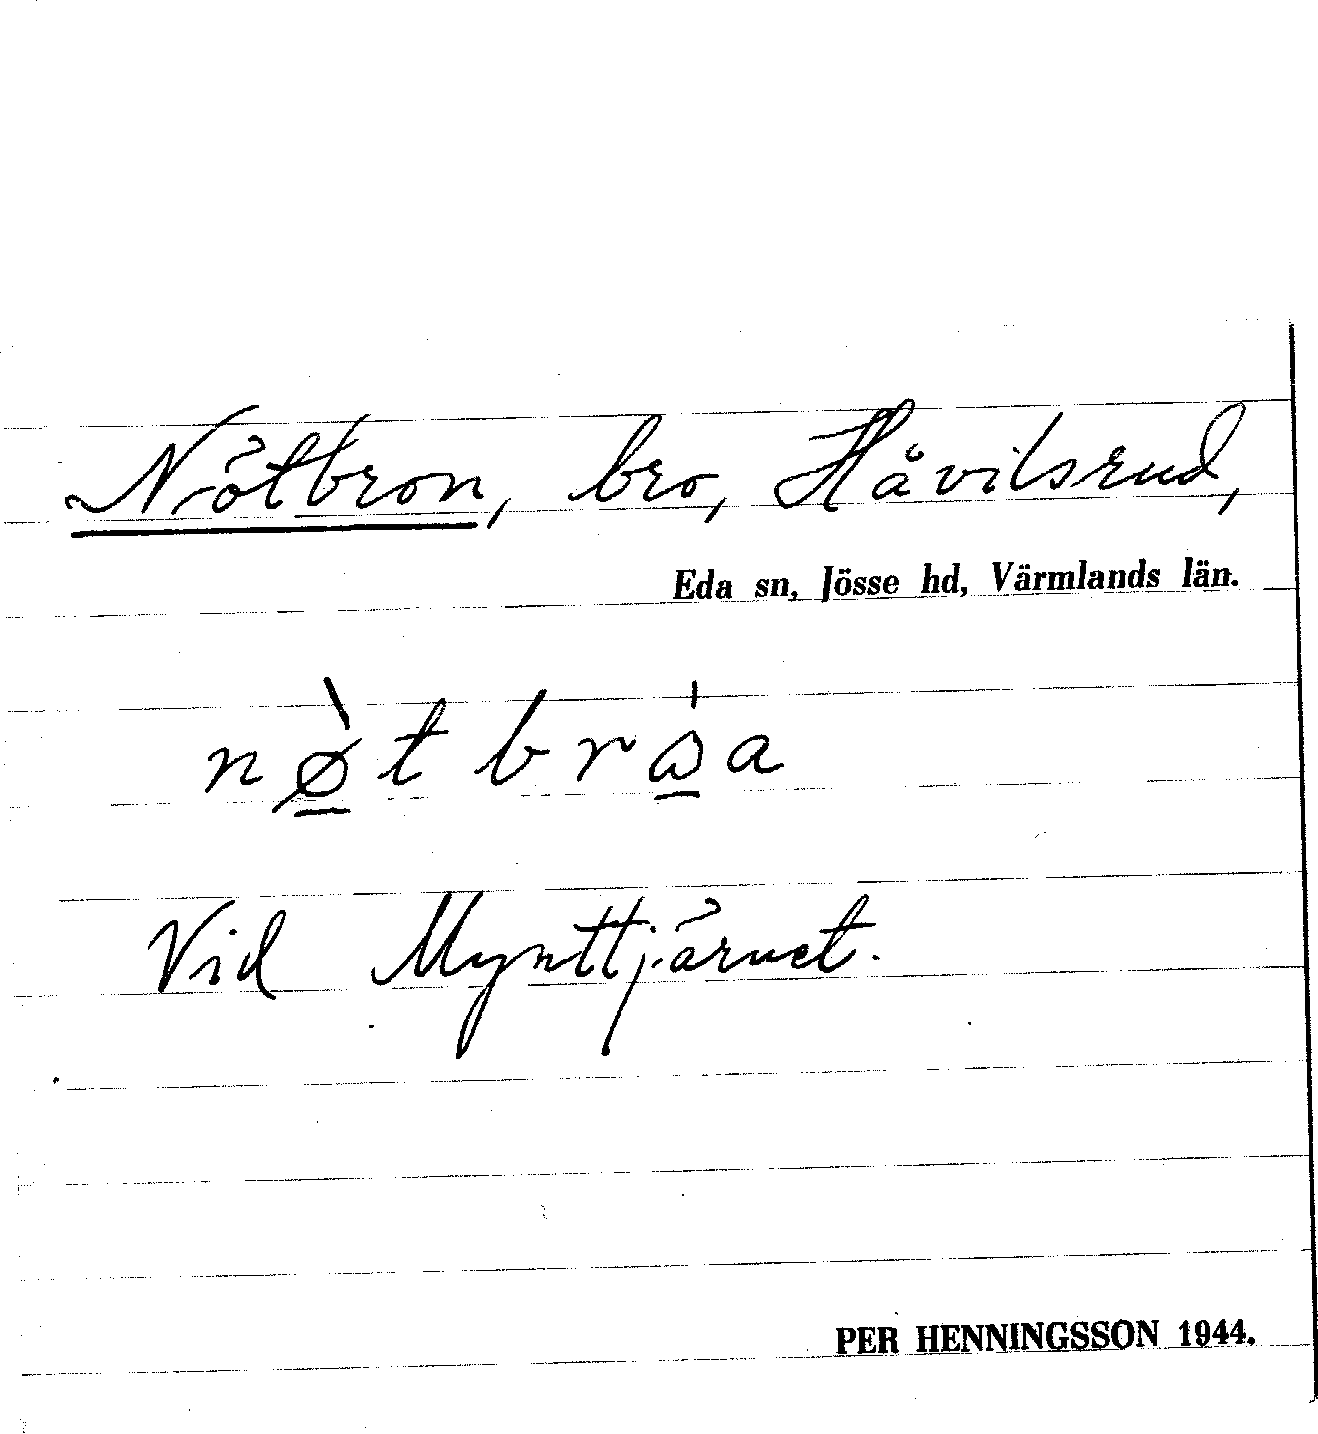 Nötbron, bro, Håvilsrud,
Eda sn, Jösse hd, Värmlands län.
nø̲̀t brω̲̍a
Vid Mynttjärnet.
PER HENNINGSSON 1944.